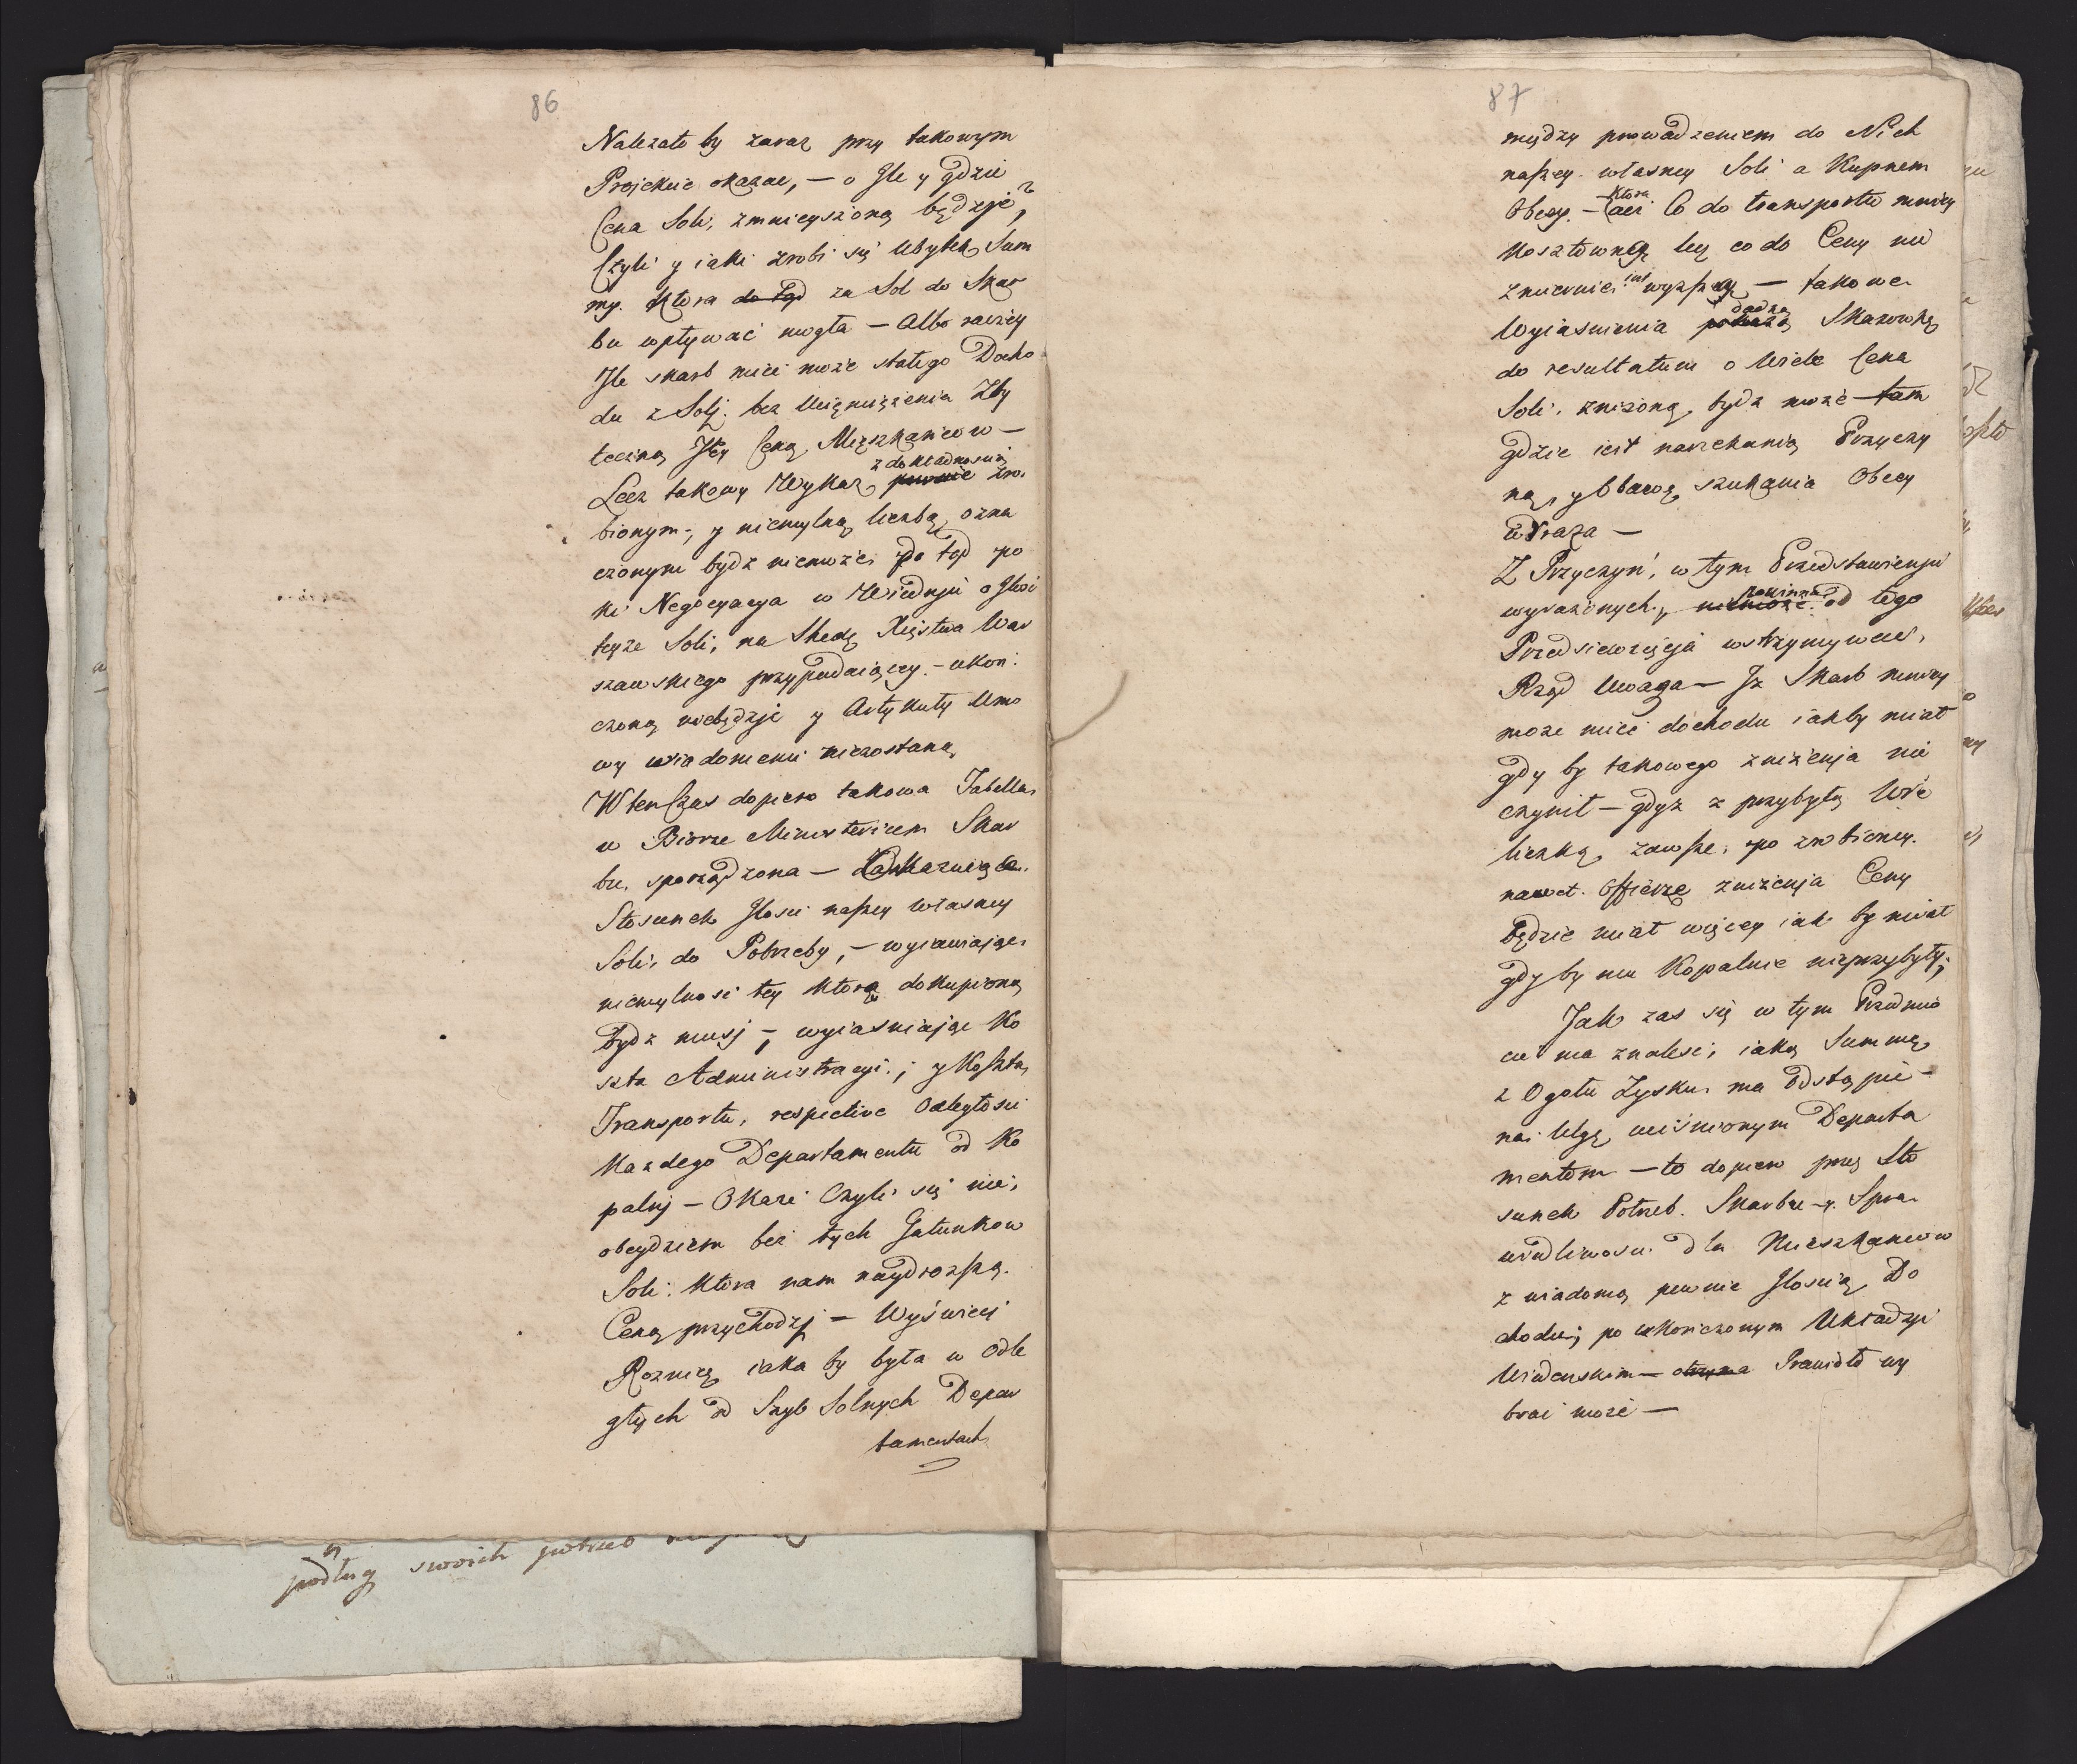 86
Nalezało by zaraz przy takowym
Projekcie okazać, — o Jle y gdzie
Cena Soli, zmnieyszoną będzje?
Czyli y iaki zrobi się Ubytek Sum
my. Ktora do tąd za Sol do Skar
bu wpływać mogła — Albo raczéy
Jle skarb mieć może stałego Docho
du z Soli. bez Uciemiężenia Zby
teczną Jéy Ceną Mięszkańcow —
z dokładnoscią
Lecz takowy Wykaz pewnie zro.
bionym; y niemylną liczbą ozna
czonym bydz niemoże po tąd po
ki Negocyacya w Wiednju o Jlosć
teyze Soli, na Shedę Xięstwa War
szawskiego przypadaiącey. — ukoń.
czoną niebędzje y Artykuły Umo
wy wiadomemi niezostaną
WtenCzas dopiero takowa Tabella
w Biorze Ministerium Skar
bu, sporządzona —
Stosunek Jlosci naszey własney
Soli, do Potrzeby, — wyiawiając
niemylnosć tey ktora dokupioną
bydz musj — wyiasniając Ko
szta Administracyi; y Koszta
Transportu, respective Odległosci
Kazdego Departamentu od Ko
palnj — Okaże Czyli się nie,
obeydziem bez tych Gatunkow
Soli. Ktora nam naydrozszą.
Ceną przychodzj — Wyświeci
Roznicę iaka by była w Odle
głych od Szyb Solnych Depar
tamentach
87
między prowadzeniem do Nich
naszey własney Soli a Kupnem
ktora
Obcey. — Co do transportu mniey
kosztowną lecz co do Ceny nie
zmiernie iest wyzszą — takowe
dadzą
Wyiasnienia pokażą Skazowkę
do resultatum o Wiele Cena
Soli, znizoną bydz może — tam
gdzie iest narzekanią Przyczy
ną, y Obawą szukania Obcey
wraza —
Z Przyczyń, w tym Przedstawienju
powinna
wyrażonych, niemoże od tego
Przedsiewzięcja wstrzymywać,
Rząd Uwaga — Jz Skarb mniey
moze mieć dochodu iakby miał
gdy by takowego zniżenja nie
czynił — gdyz z przybytą Wie
liczką zawsze, po zrobioney.
nawet. Offierze zniżenja Ceny
będzie miał więcey iak by miał
gdy by mu Kopalnie nieprzybyły;
Jak zas się w tym Przedmio
cie ma znalesć, iaką Summę
z Ogołu Zysku ma Odstąpić
na Ulgę uciśnionym Departa
mentom — to dopiero przez Sto
sunek Potrzeb. Skarbu y. Spra
wiedliwosci dla Mieszkancow
z wiadomą pewnie Jloscią Do
chodu; po ukonczonym Układzje
Wiedenskim — Prawideł wy
brać może —
podług swoich potrzeb